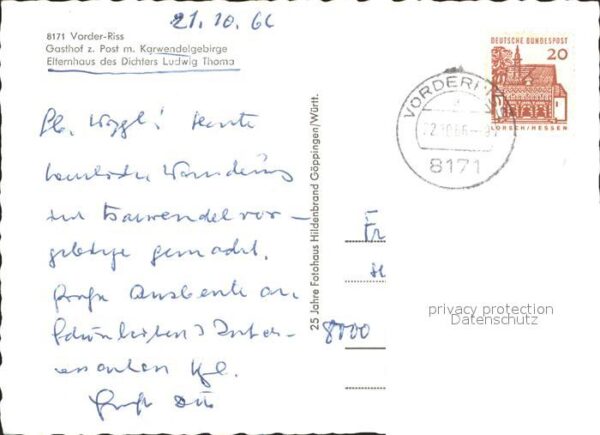 21.10.66
8171 Vorder-Riss
Gasthof z. Post m. Karwendelgebirge
Elternhaus des Dichters Ludwig Thoma
Heute
herrliche Wanderung
im Karwendelvor-
gebirge gemacht.
Große Ausbeute an
Schönheiten & Inter-
essantem
Gruß
25 Jahre Fotohaus Hildenbrand Göppingen/Württ.
DEUTSCHE BUNDESPOST
20
LORSCH/HESSEN
VORDERRISS
22.10.66
8171
8000
privacy protection
Datenschutz